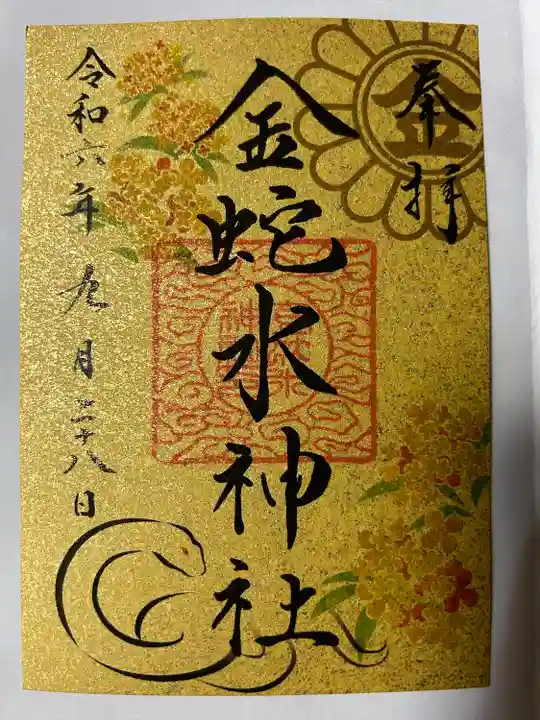 奉拝
金
金蛇水神社
令和六年九月二十八日